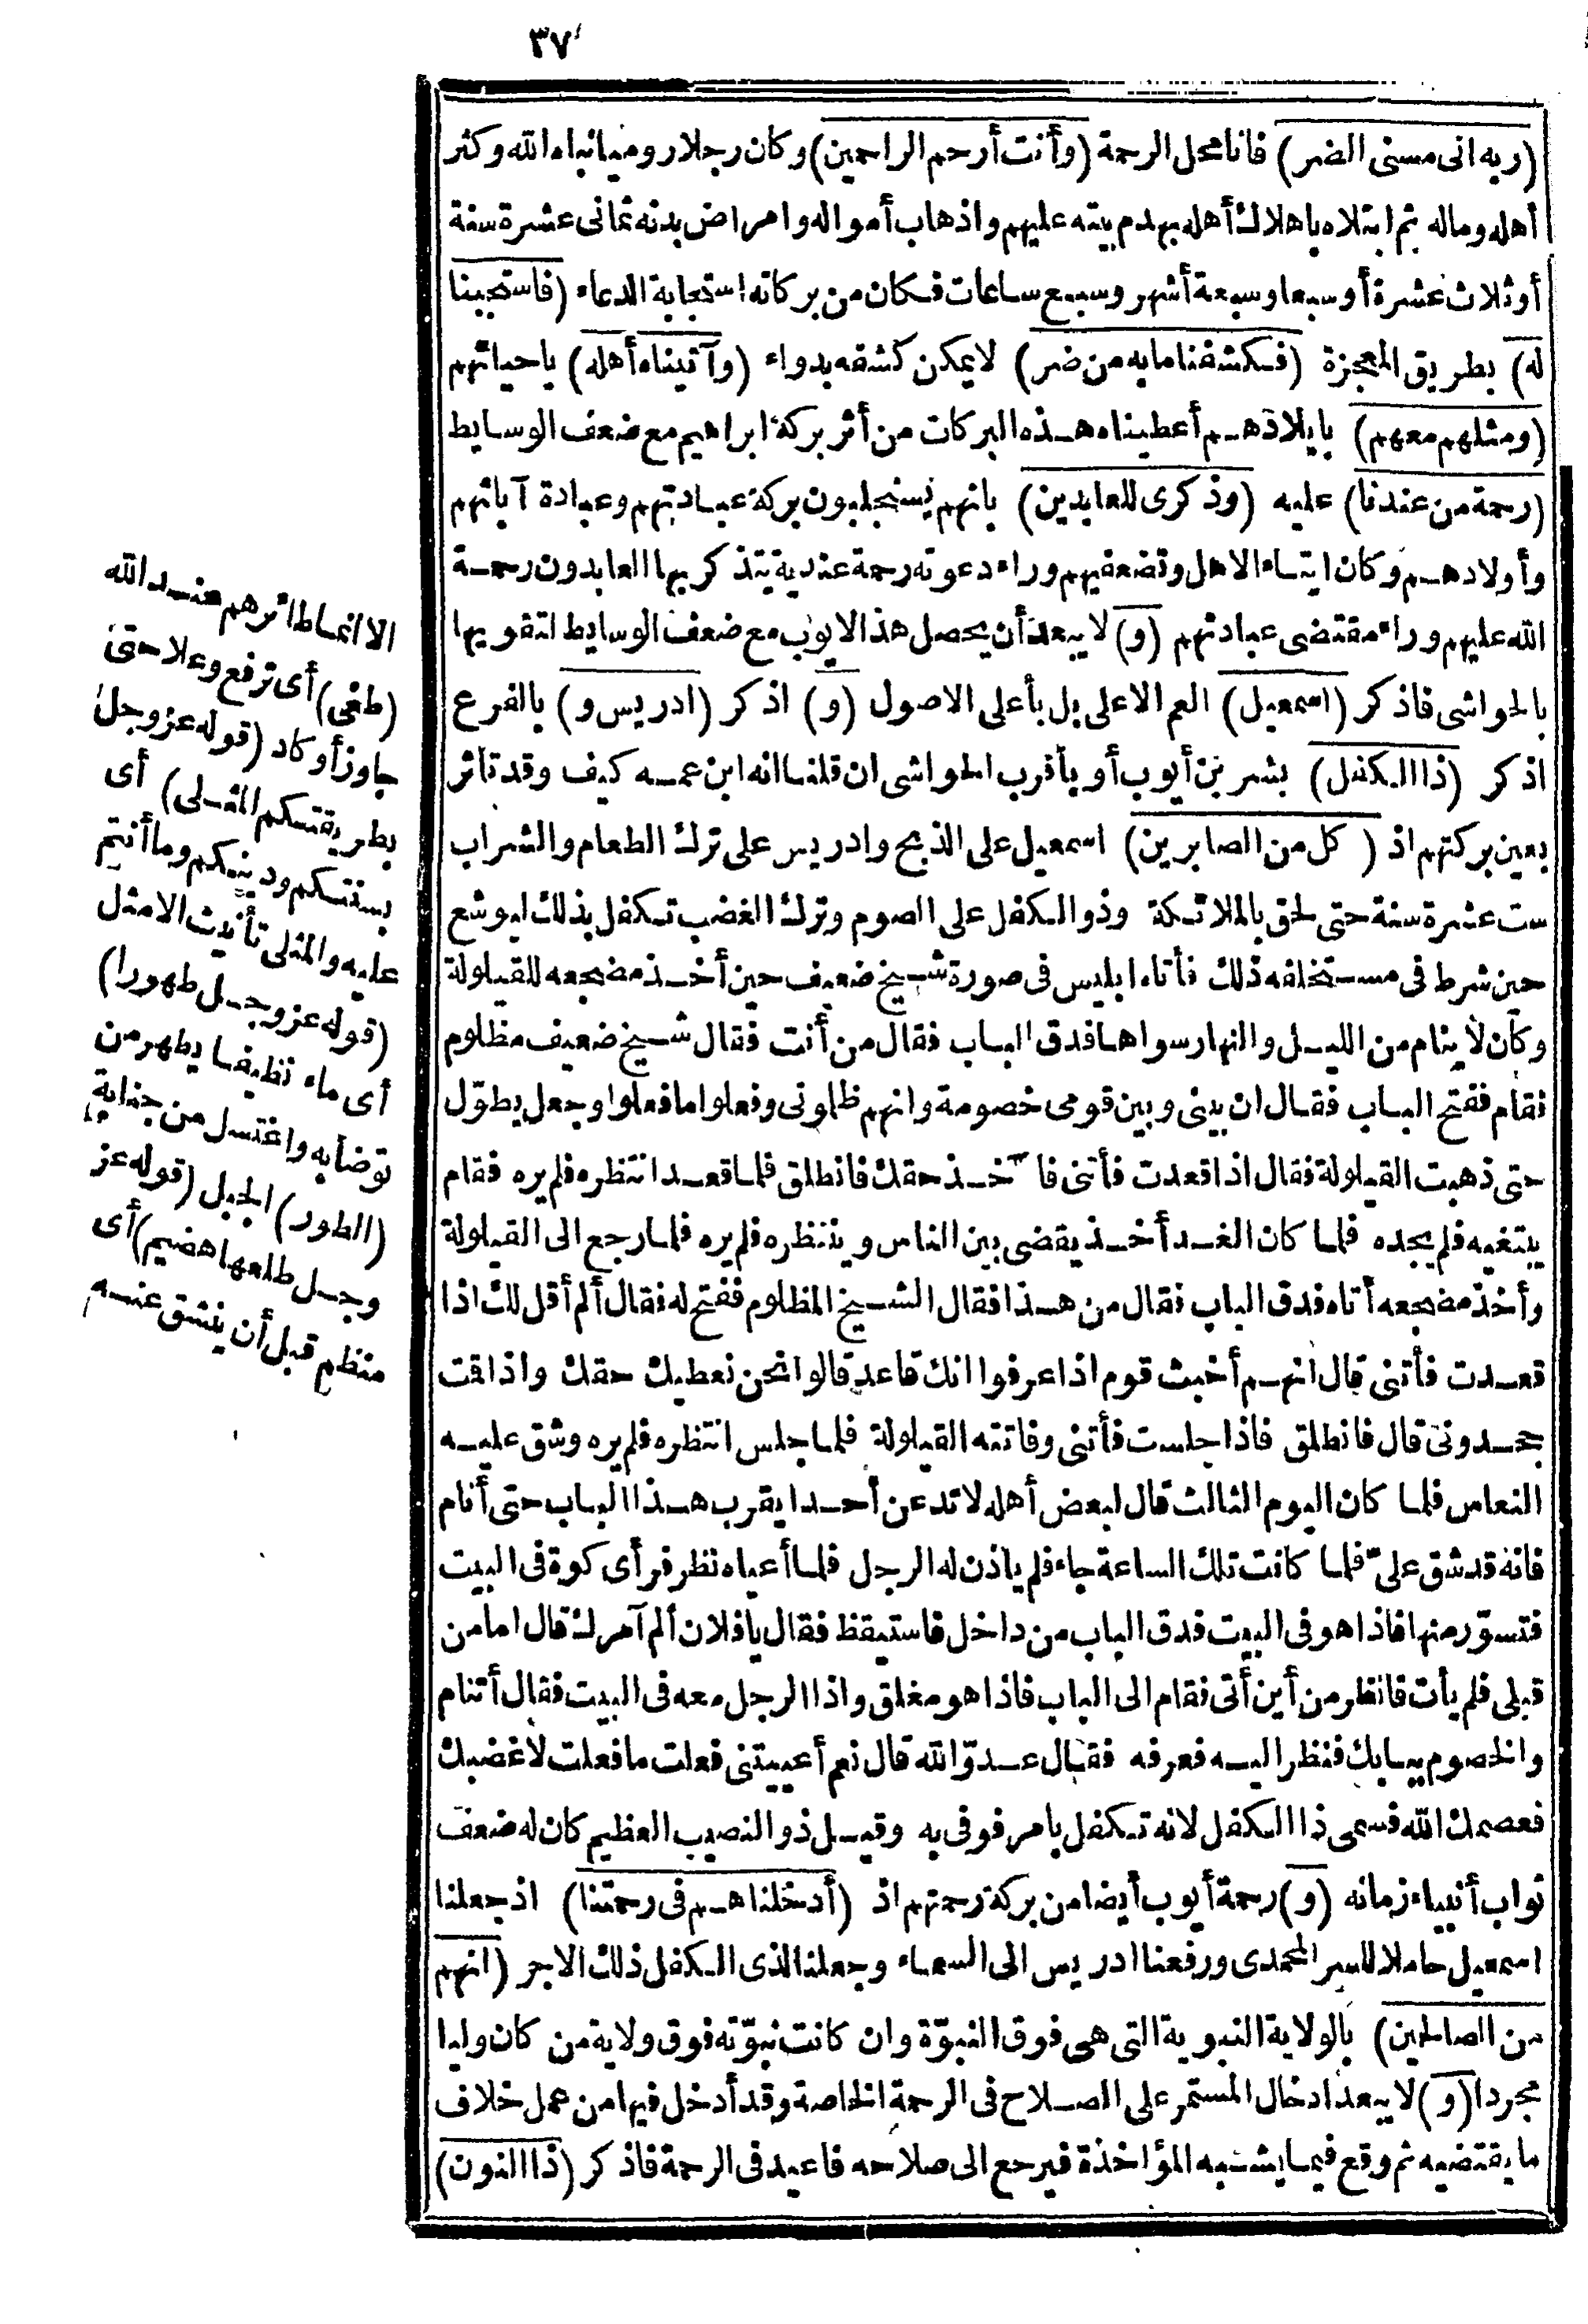 ٣٧
(ربه انى مسنى الضر) فانا محل الرحمة (وأنت أرحم الراحمين) وكان رجلا روميا نباه الله وكثر
أهله وماله ثم ابتلاه باهلاك أهله بهدم بيته عليهم واذهاب أمواله وامراض بدنه ثمانى عشرة سنة
أو ثلاث عشرة أو سبعا وسبعة أشهر وسبع ساعات فكان من بركاته استجابة الدعاء (فاستجبنا
له) بطريق المعجزة (فكشفنا ما به من ضر) لا يمكن كشفه بدواء (وآتيناه أهله) باحيائهم
(ومثلهم معهم) بايلادهم أعطيناه هذه البركات من أثر بركة ابراهيم مع ضعف الوسايط
(رحمة من عندنا) عليه (وذكرى للعابدين) بانهم يستجلبون بركة عبادتهم وعبادة آبائهم
وأولادهم وكان ايتاء الاهل وتضعفيهم وراء دعوته رحمة عندية يتذكر بها العابدون رحمة
الله عليهم وراء مقتضى عبادتهم (و) لا يبعد أن يحصل هذا الايوب مع ضعف الوسايط لتقويها
بالحواشى فاذكر (اسمعيل) العم الاعلى بل بأعلى الاصول (و) اذكر (ادريس و) بالفرع
اذكر (ذا الكفل) بشر بن أيوب أو بأقرب الحواشى ان قلنا انه ابن عمه كيف وقد تأثر
بعين بركتهم اذ (كل من الصابرين) اسمعيل على الذبح وادريس على ترك الطعام والشراب
ست عشرة سنة حتى لحق بالملائكة وذو الكفل على الصوم وترك الغضب تكفل بذلك ليوشع
حين شرط فى مستخلفه ذلك فأتاه ابليس فى صورة شيخ ضعيف حين أخذ مضجعه للقيلولة
وكان لا ينام من الليل والنهار سواها فدق الباب فقال من أنت فقال شيخ ضعيف مظلوم
فقام ففتح الباب فقال ان بينى وبين قومى خصومة وانهم ظلمونى وفعلوا ما فعلوا وجعل يطوّل
حتى ذهبت القيلولة فقال اذا قعدت فأتنى فآخذ حقك فانطلق فلما قعد انتظره فلم يره فقام
يبتغيه فلم يجده فلما كان الغد أخذ يقضى بين الناس وينتظره فلم يره فلما رجع الى القيلولة
وأخذ مضجعه أتاه فدق الباب فقال من هذا فقال الشيخ المظلوم ففتح له فقال ألم أقل لك اذا
قعدت فأتنى قال انهم أخبث قوم اذا عرفوا انك قاعد قالوا نحن نعطيك حقك واذا قمت
جحدونى قال فانطلق فاذا جلست فأتنى وفاتته القيلولة فلما جلس انتظره فلم يره وشق عليه
النعاس فلما كان اليوم الثالث قال لبعض أهله لا تدعن أحدا يقرب هذا الباب حتى أنام
فانه قد شق علىّ فلما كانت تلك الساعة جاء فلم ياذن له الرجل فلما أعياه نظر فرأى كوة فى البيت
فتسوّر منها فاذا هو فى البيت فدق الباب من داخل فاستيقظ فقال يا فلان ألم آمرك قال اما من
قبلى فلم يأت فانظر من أين أتى فقام الى الباب فاذا هو مغلق واذا الرجل معه فى البيت فقال أتنام
والخصوم ببابك فنظر اليه فعرفه فقال عدوّ الله قال نعم أعييتنى فعلت ما فعلت لاغضبك
فعصمك الله فسمى ذا الكفل لانه تكفل بامر فوفى به وقيل ذو النصيب العظيم كان له ضعف
ثواب أنبياء زمانه (و) رحمة أيوب أيضا من بركة رحمتهم اذ (أدخلناهم فى رحمتنا) اذ جعلنا
اسمعيل حاملا للسر المحمدى ورفعنا ادريس الى السماء وجعلنا لذى الكفل ذلك الاجر (انهم
من الصالحين) بالولاية النبوية التى هى فوق النبوّة وان كانت نبوّته فوق ولاية من كان وليا
مجردا (و) لا يبعد ادخال المستمر على الصلاح فى الرحمة الخاصة وقد أدخل فيها من عمل خلاف
ما يقتضيه ثم وقع فيما يشبه المؤاخذة فيرجع الى صلاحه فاعيد فى الرحمة فاذكر (ذا النون)
الا انماطائرهم عند الله
(طغى) أى ترفع وعلا حتى
جاوز أو كاد (قوله عز وجل
بطريقتكم المثلى) أى
بسنتكم ودينكم وما أنتم
عليه والمثلى تأنيث الامثل
(قوله عز وجل طهورا)
أى ماء نظيفا يطهر من
توضأ به واغتسل من جنابة
(الطور) الجبل (قوله عز
وجل طلعها هضيم) أى
منظم قبل أن ينشق عنه